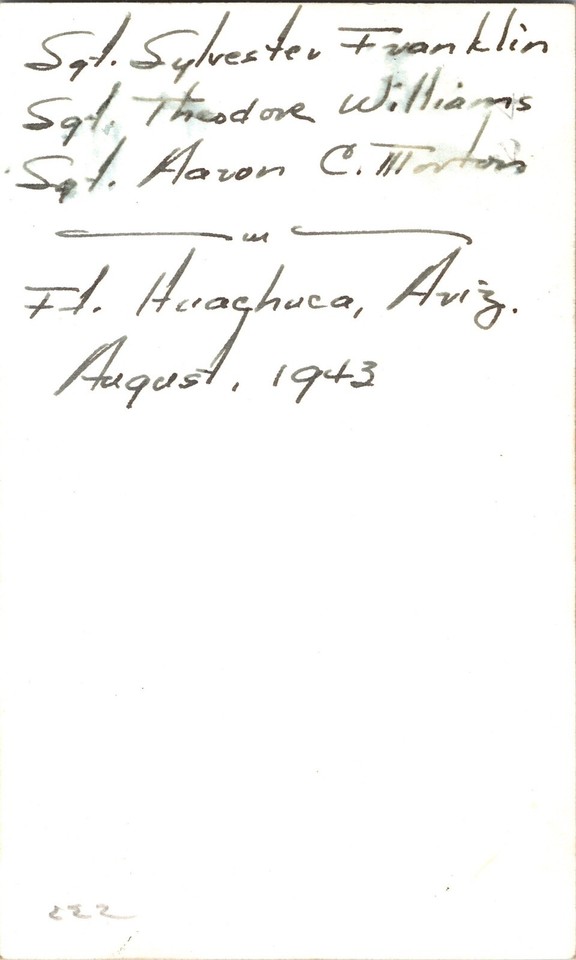 Sgt. Sylvester Franklin
Sgt. Theodore Williams
Sgt. Aaron C. Morton
in
Ft. Huachuca, Ariz.
August, 1943